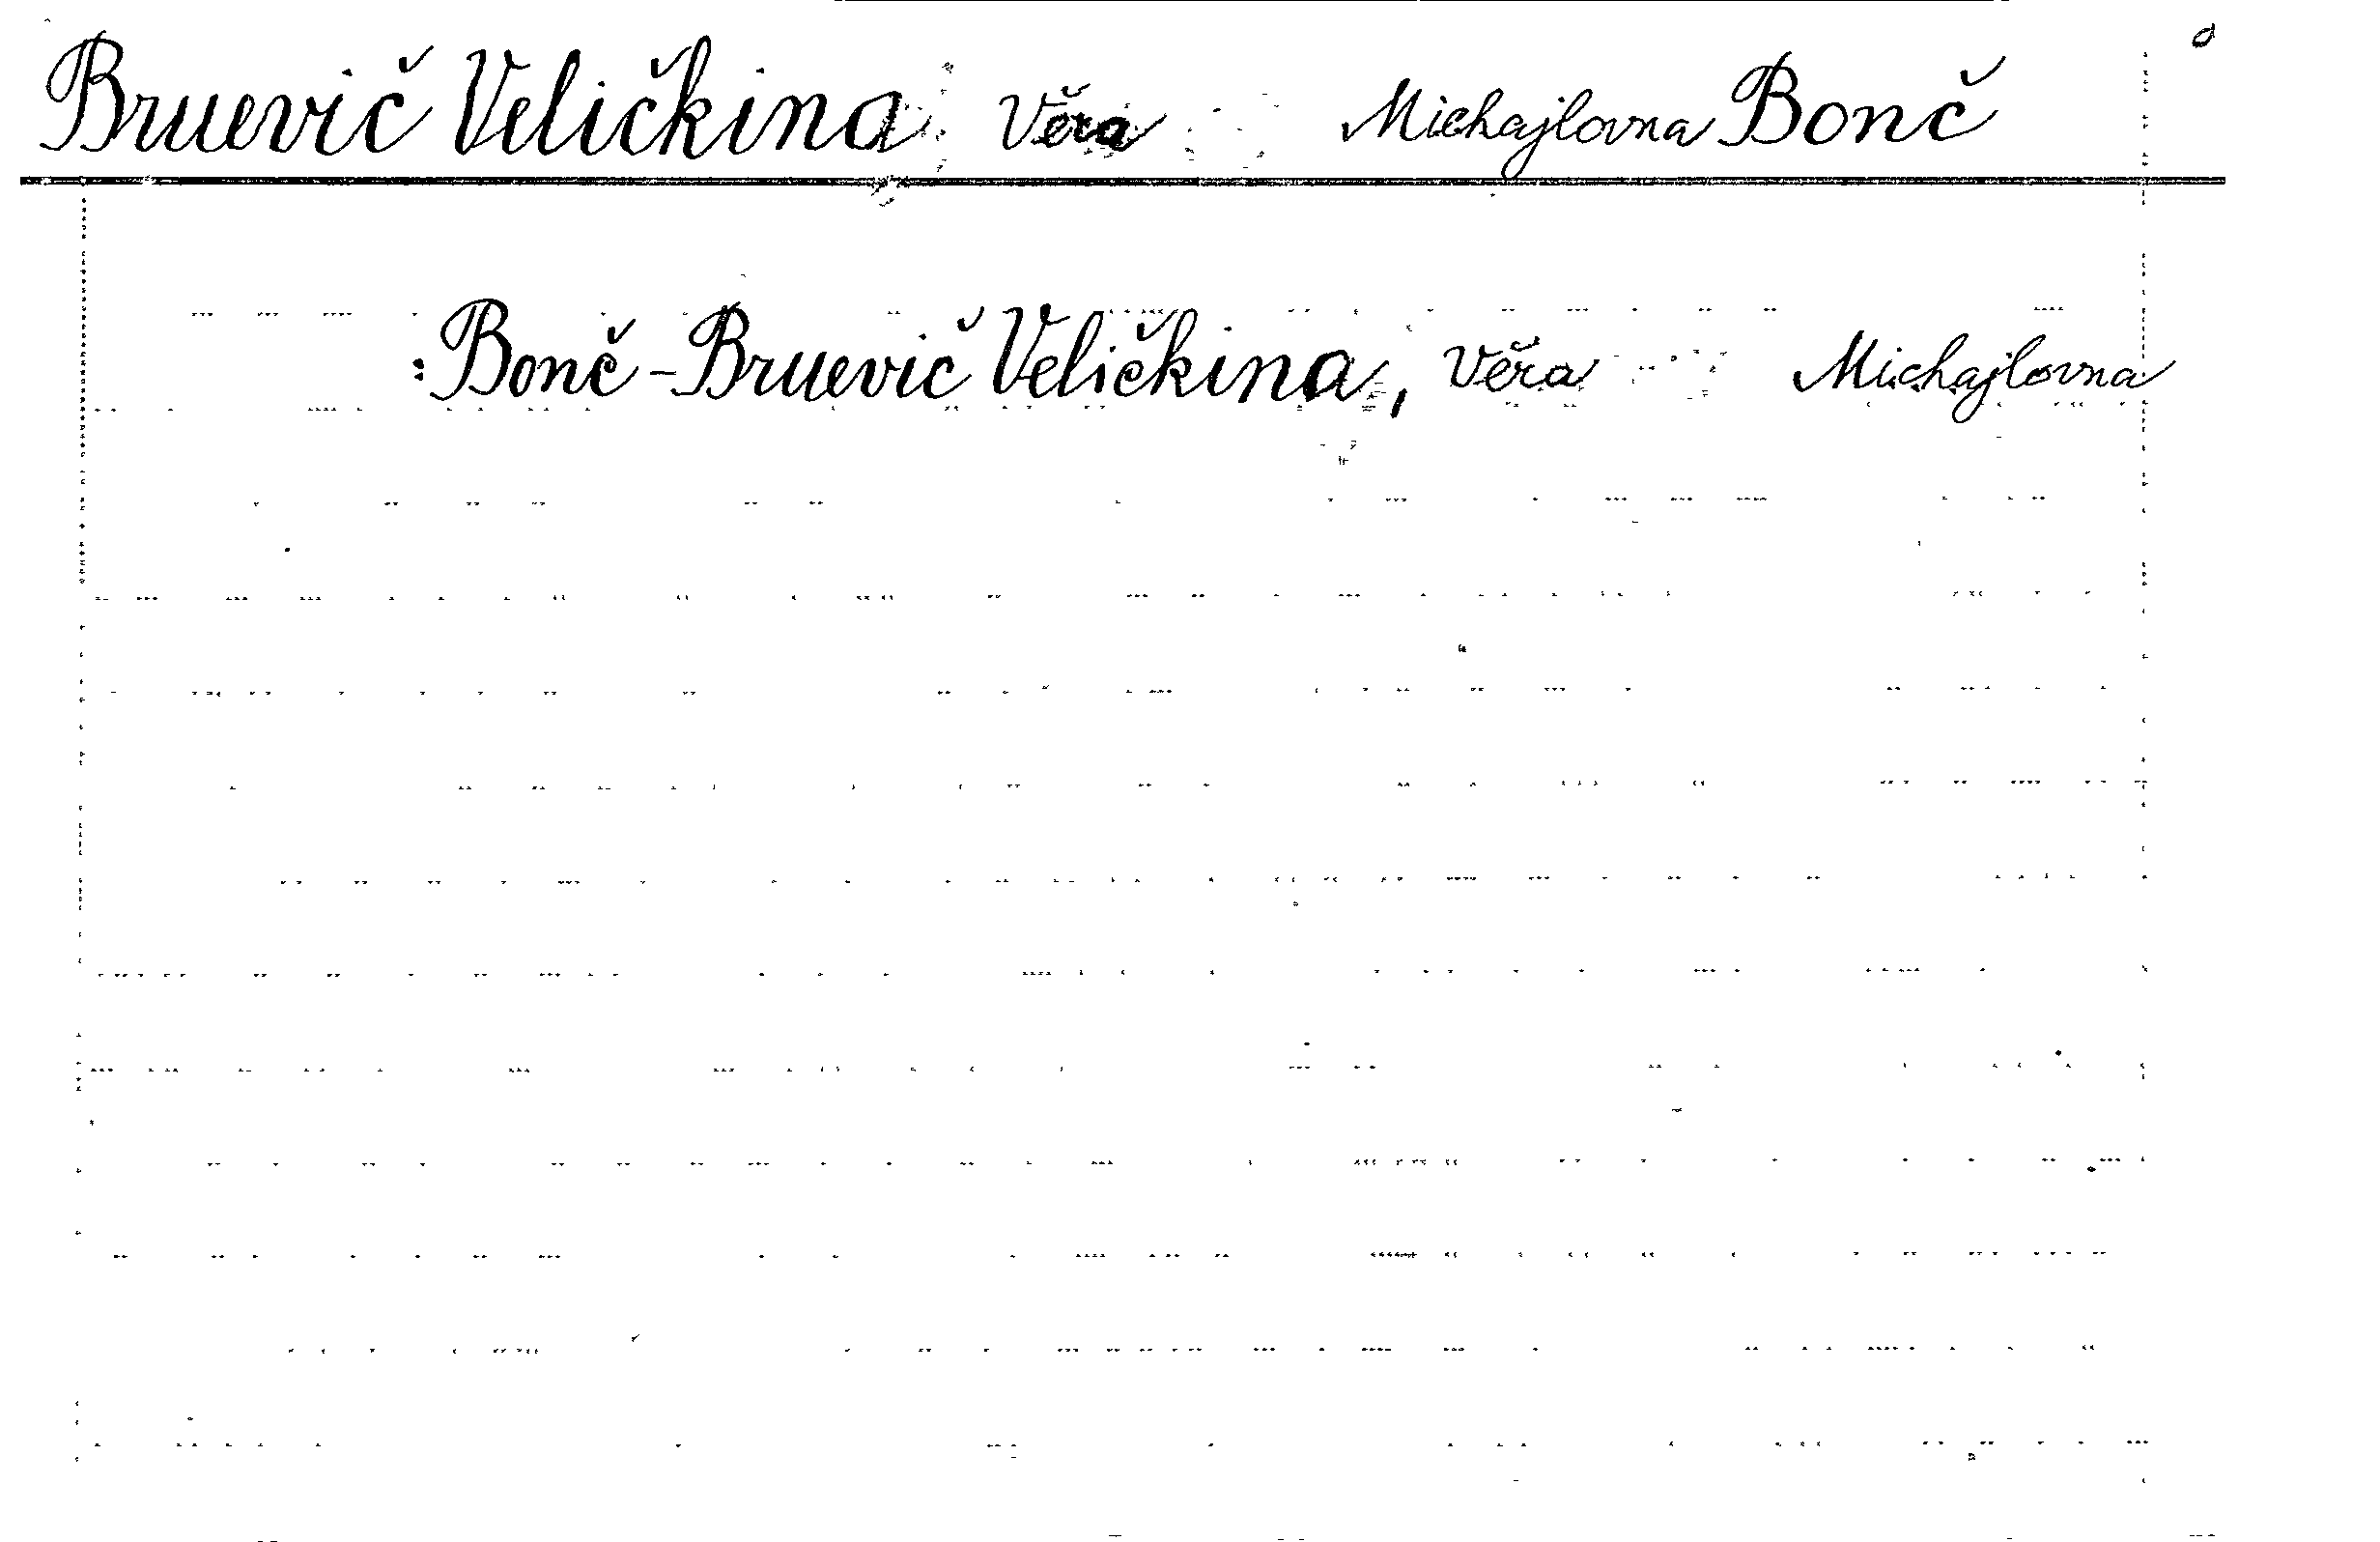 Bruevič Veličkina Věra Michajlovna Bonč
: Bonč-Bruevič Veličkina, Věra Michajlovna